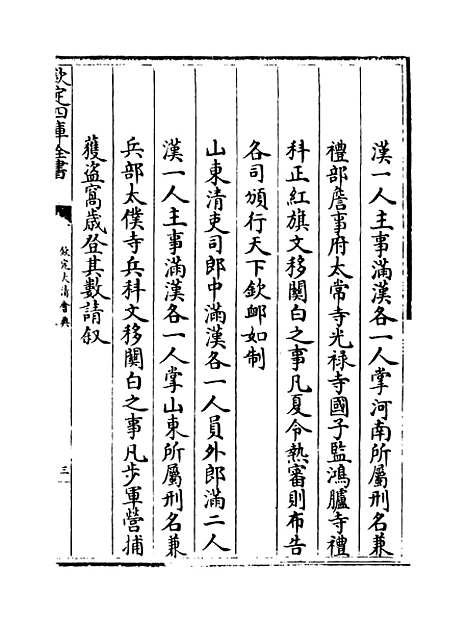 漢一人主事滿漢各一人掌河南所屬刑名兼
禮部詹事府太常寺光禄寺國子監鴻臚寺禮
科正紅旗文移闗白之事凡夏令熱審則布告
各司頒行天下欽䘏如制
山東清吏司郎中滿漢各一人員外郎滿二人
漢一人主事滿漢各一人掌山東所屬刑名兼
兵部太僕寺兵科文移闗白之事凡步軍營捕
獲盗窩歳登其數請叙
欽定四庫全書
欽定大清會典
三